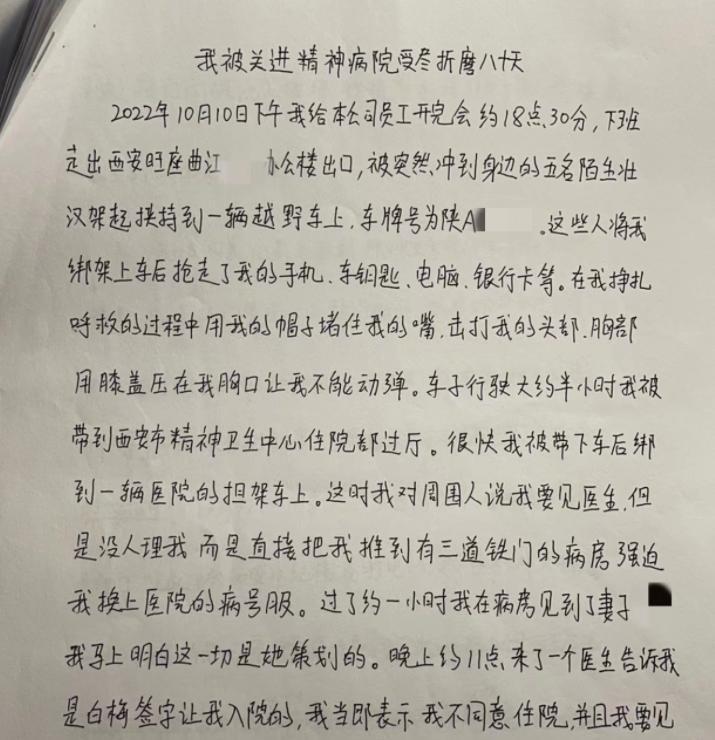 我被关进精神病院受尽折磨八十天
2022年10月10日下午我给本公司员工开完会约18点30分，下班
走出西安旺座曲江 办公楼出口，被突然冲到身边的五名陌生壮
汉架起挟持到一辆越野车上，车牌号为陕A 。这些人将我
绑架上车后抢走了我的手机、车钥匙、电脑、银行卡等。在我挣扎
呼救的过程中用我的帽子堵住我的嘴，击打我的头部、胸部
用膝盖压在我胸口让我不能动弹。车子行驶大约半小时我被
带到西安市精神卫生中心住院部过厅。很快我被带下车后绑
到一辆医院的担架车上。这时我对周围人说我要见医生，但
是没人理我 而是直接把我推到有三道铁门的病房 强迫
我换上医院的病号服。过了约一小时我在病房见到了妻子
我马上明白这一切是她策划的。晚上约11点来了一个医生告诉我
是白梅签字让我入院的，我当即表示 我不同意住院，并且我要见